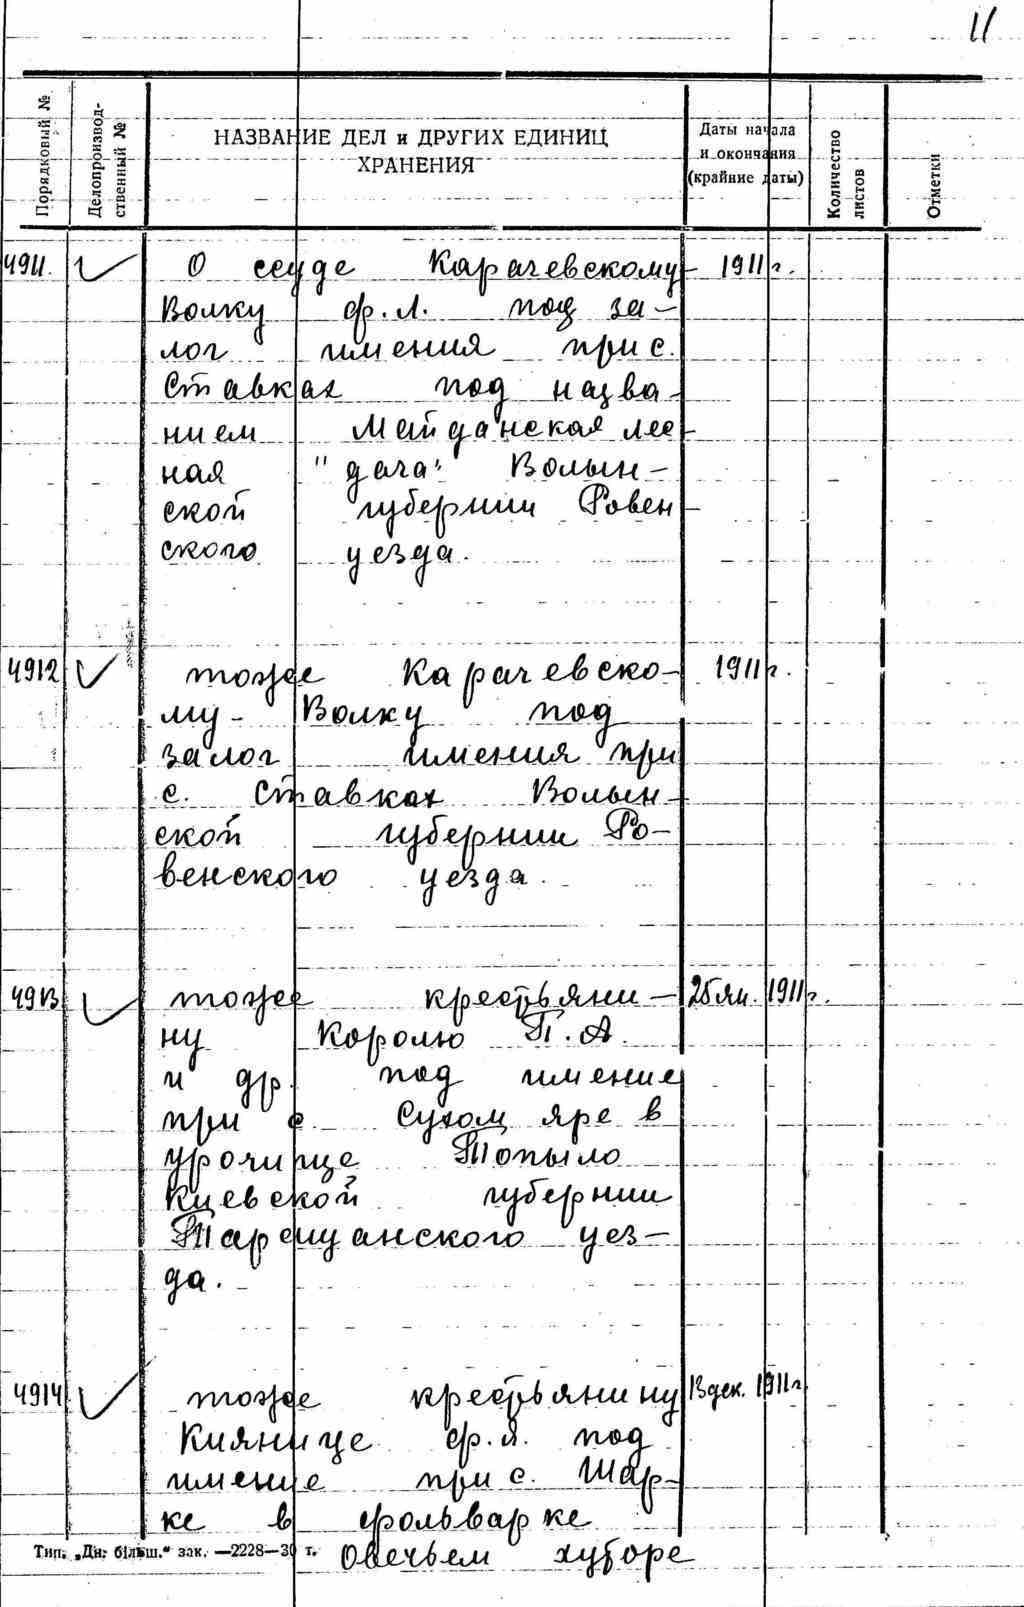 11
Порядковый №
Делопроизвод-
ственный №
НАЗВАНИЕ ДЕЛ и ДРУГИХ ЕДИНИЦ
ХРАНЕНИЯ
Даты начала
и окончания
(крайние даты)
Количество
листов
Отметки
4911. О ссуде Карачевскому 1911 г.
Волку Ф.Л. под за-
лог имения при с.
Ставках под назва-
нием Майданская лес
ная "дача" Волын-
ской губернии Ровен
ского уезда.
4912 тоже Карачевско- 1911 г.
му - Волку под
залог имения при
с. Ставках Волын-
ской губернии Ро-
венского уезда.
4913 тоже крестьяни- 25 ян. 1911 г.
ну Королю П.А.
и др. под имение
при с. Сухом яре в
урочище Топыло
Киевской губернии
Таращанского уез-
да.
4914 тоже крестьянину 13 дек. 1911 г
Киянице Ф.Я. под
имение при с. Шар-
ке в фольварке
Овечьем хуторе
Тип. „Дн. більш." зак. —2228—30 т.